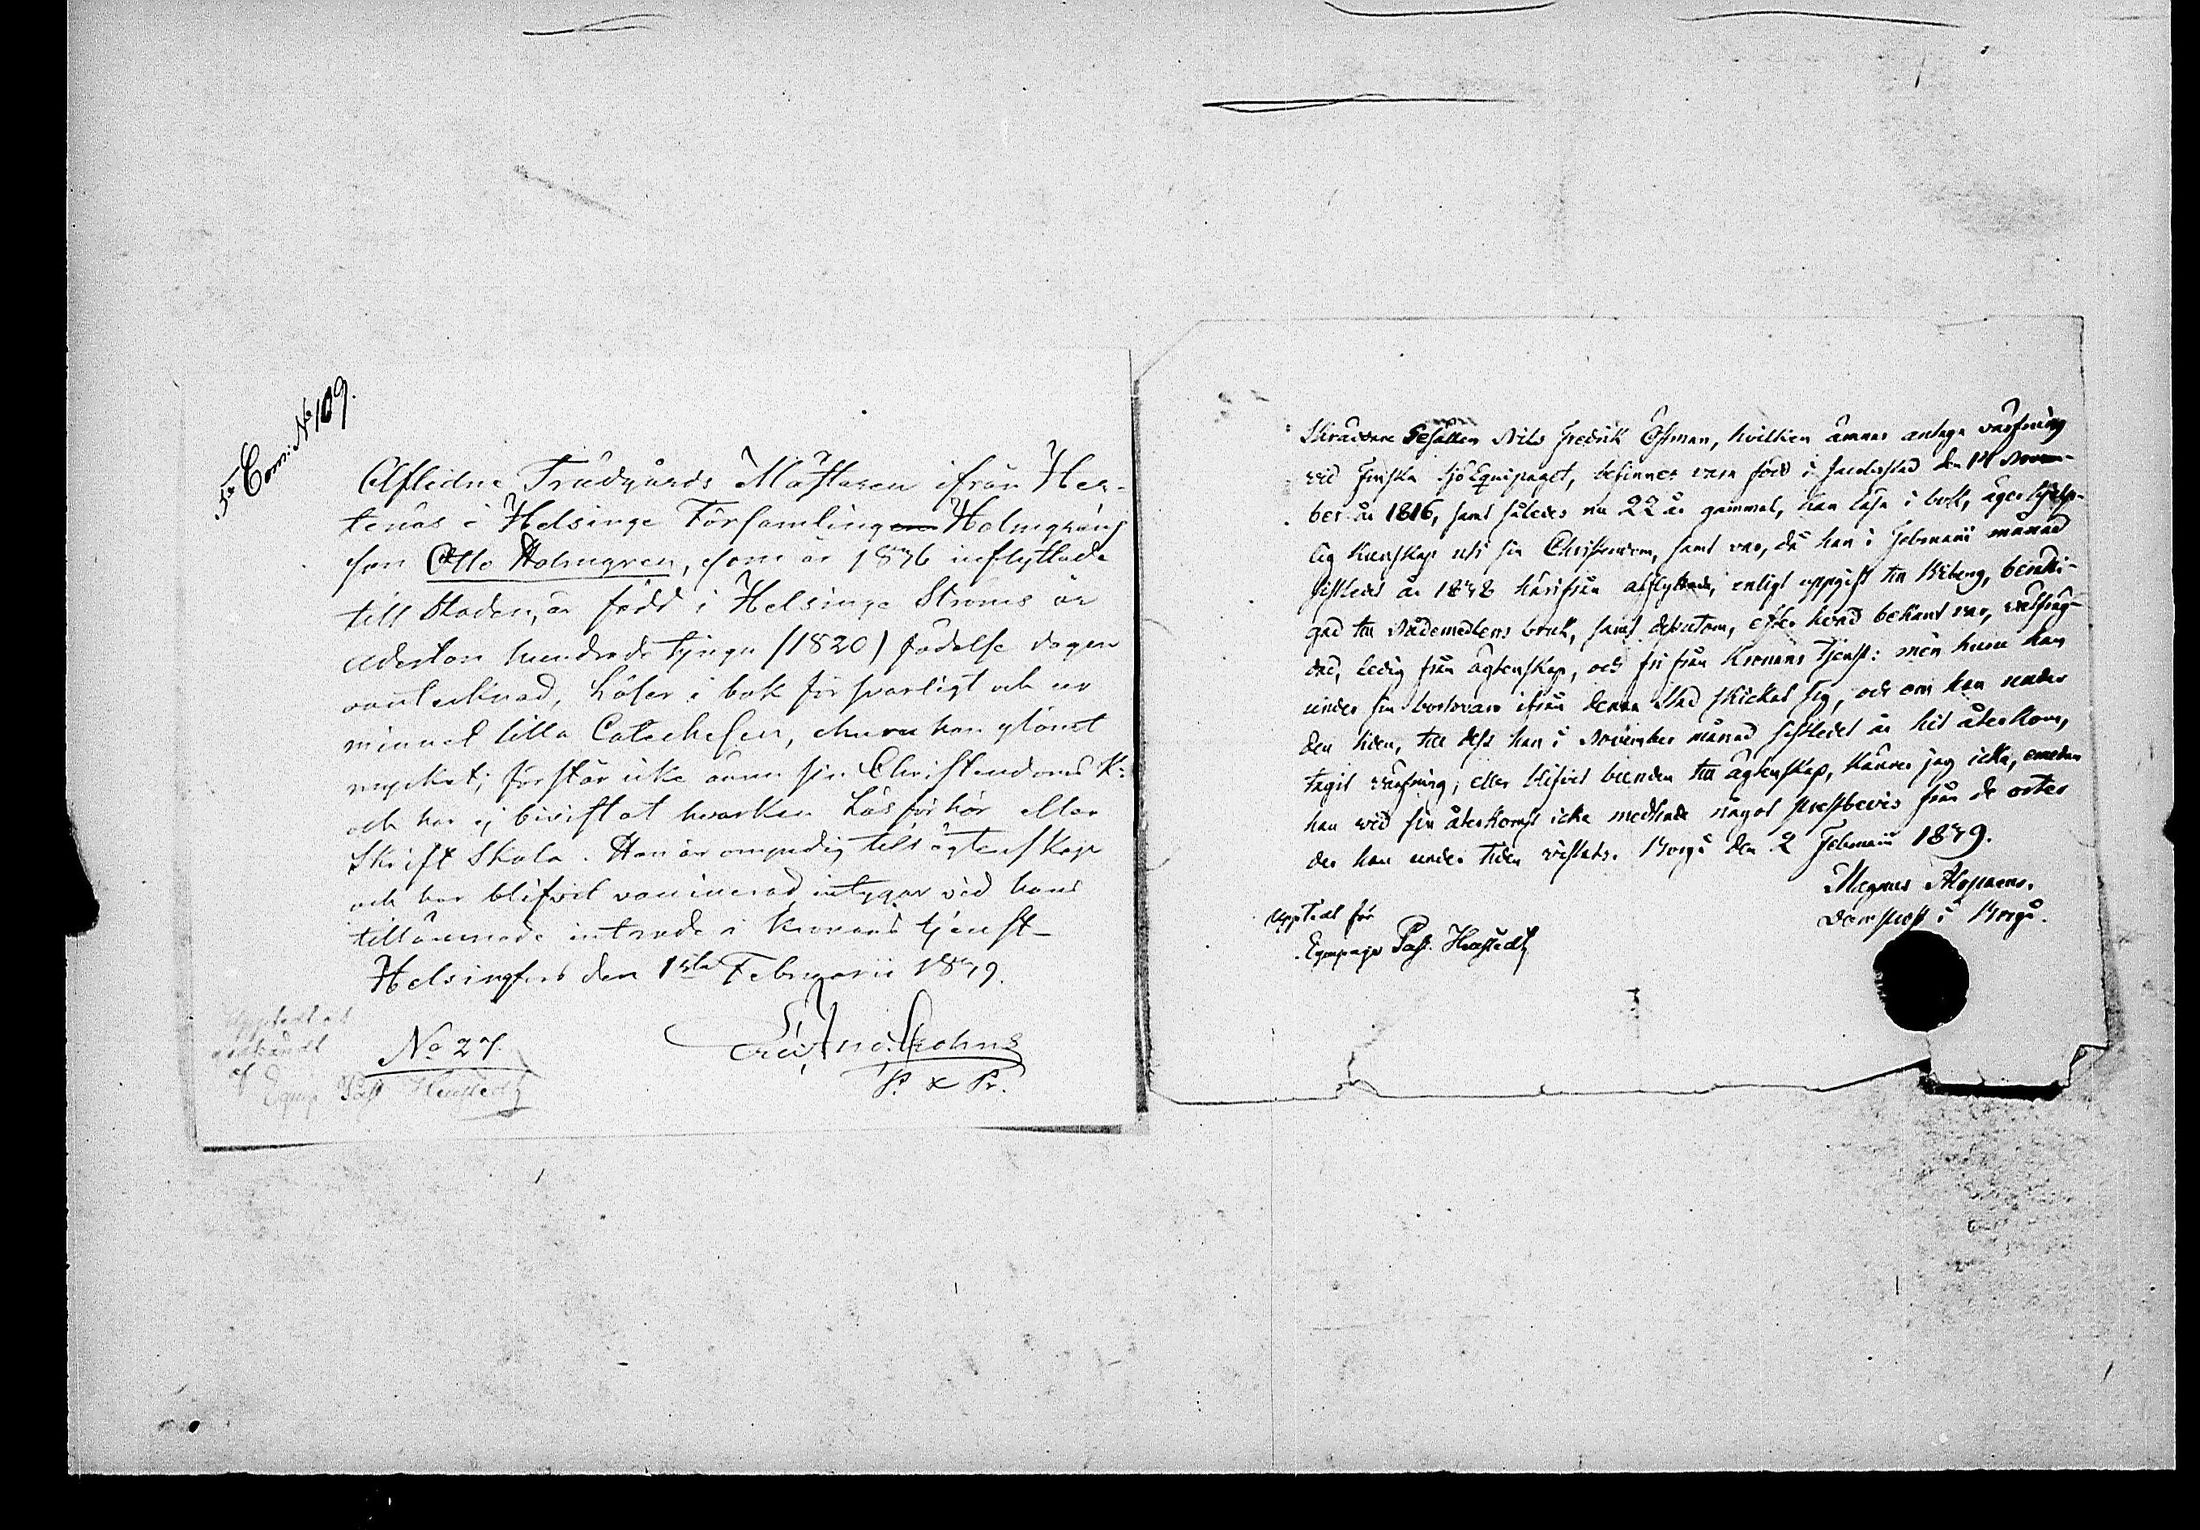 Fr Com: No 109.
Aflidne Trädgårds Mästaren ifrån Her-
tenäs i Helsinge Församling Holmgréns
son Otto Holmgren, som år 1836 inflyttade
till Staden, är född i Helsinge Ströms år
Aderton hundrade tjugu /1820/ födelse dagen
oantecknad, Läser i bok försvarligt och ur
minnet lilla Catechesen, ehuru han glömt
mycket; förstår icke ännu sin Christendoms K:
och har ej bivistat hvarken Läsförhör eller
Skrift Skola. Han är omyndig till ägtenskap
och har blifvit vaccinerad, intygar vid hans
tillämnade inträde i Kronans tjenst_
Helsingfors den 1sta Februarii 1839.
No 27.
Crohns
Upptedt och
godkändt
af
Equip Past Henstedt
Skräddare Gesällen Nils Fredrik Öhman, hvilken ämnar antaga värfning
vid Finska Sjö Equipaget, befinnes vara född i Jacobstad den 14 Novem-
ber år 1816, samt således nu 22 år gammal, kan läsa i bok, äger hjelp-
lig kunskap uti sin Christendom, samt var, då han i Februarii månad
sistledet år 1838 härifrån afflyttade, enligt uppgift till Wiborg, berätti-
gad till Nådemedlens bruk, samt dessutom, efter hvad bekant var, välfräg-
dad, ledig från ägtenskap, och fri från Kronans tjenst: men huru han
under sin bortovaro ifrån denna Stad skickat sig, och om han under
den tiden, till dess han i November månad sistledet år hit återkom,
tagit värfning, eller blifvit bunden till ägtenskap, känner jag icke, emedan
han vid sin återkomst icke medhade något prestbevis från de orter
der han under tiden vistats. Borgå den 2 Februarii 1839.
Magnus Alopaeus.
Domprost i Borgå.
Upptedt för
Equipage Past. Henstedt